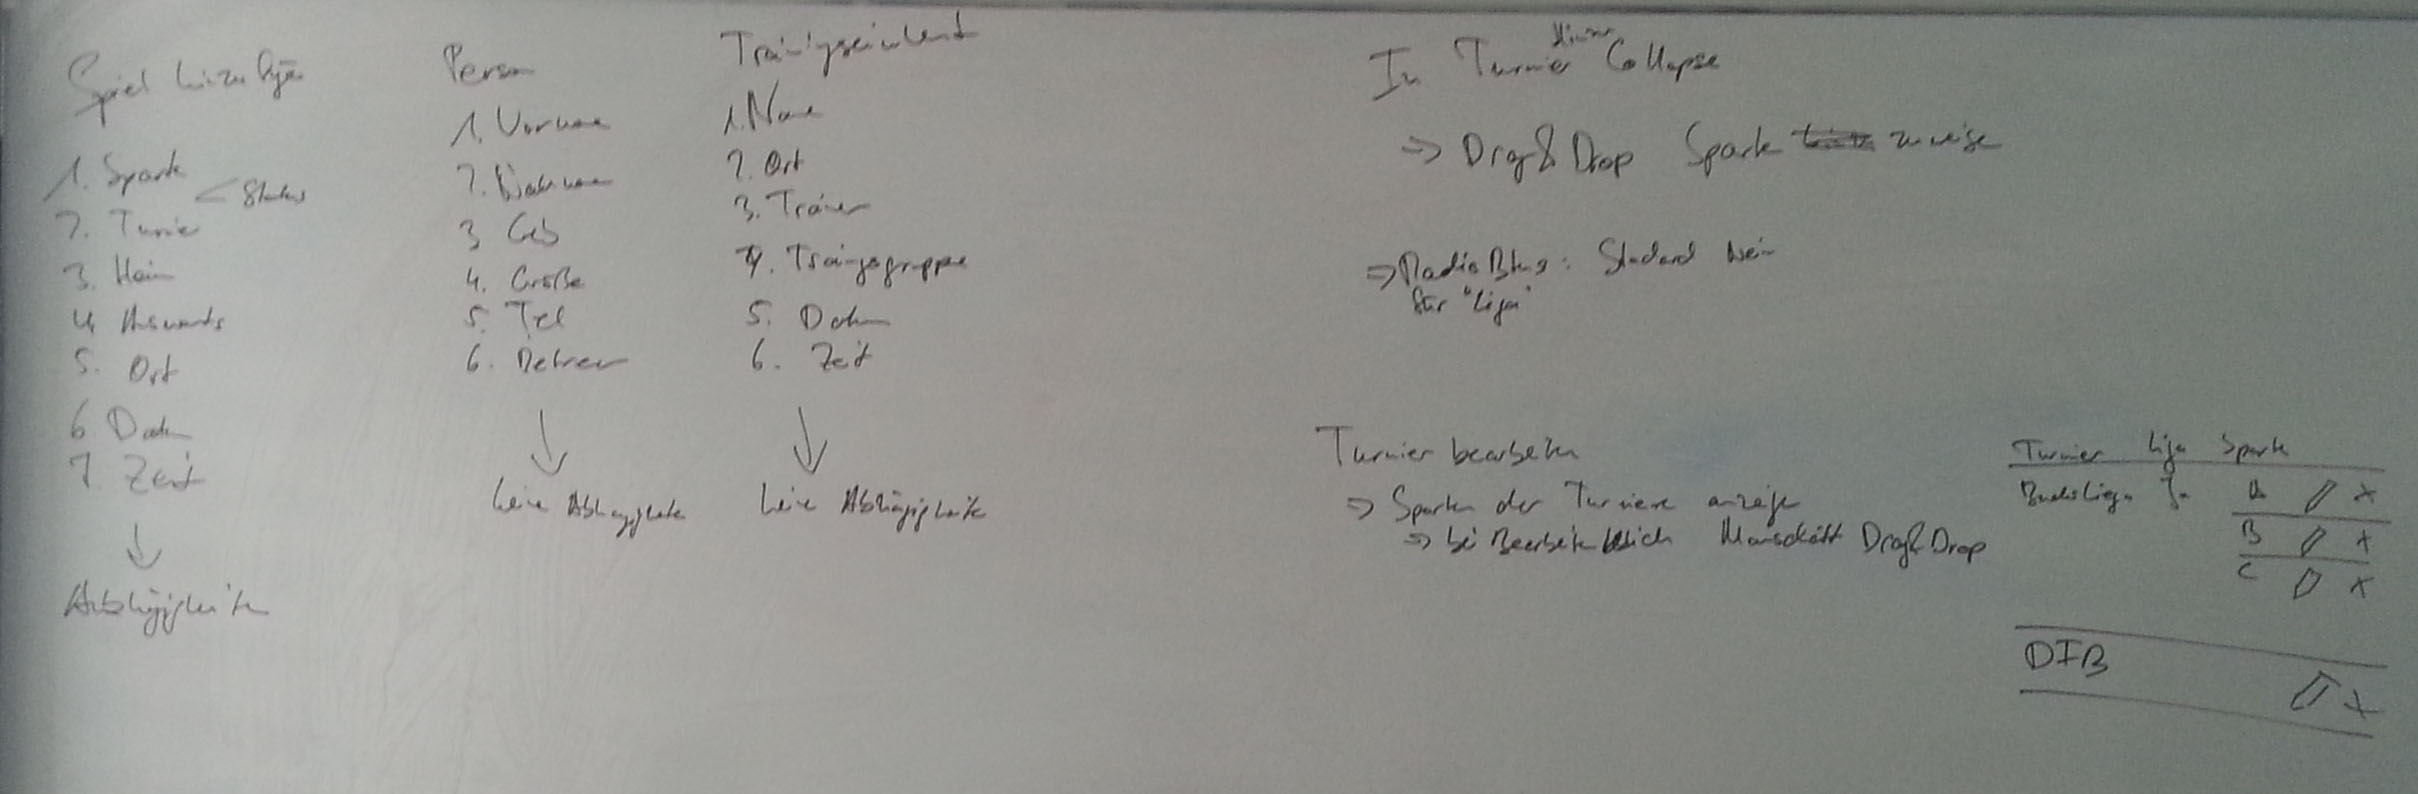 Spiel hinzufügen
1. Sparte
< Status
2. Turnier
3. Heim
4. Auswärts
5. Ort
6. Datum
7. Zeit
↓
Abhängigkeiten
Person
1. Vorname
2. Nachname
3 Geb
4. Größe
5. Tel
6. Betreuer
↓
keine Abhängigkeiten
Trainingseinheit
1. Name
2. Ort
3. Trainer
4. Trainingsgruppe
5. Datum
6. Zeit
↓
keine Abhängigkeiten
In Turnier Collapse
⇒ Drag & Drop Sparte zuweisen
⇒ Radio Btns: Standard Nein
für "Liga"
Turnier bearbeiten
⇒ Sparten der Turniere anzeigen
⇒ bei Bearbeiten Mannschaft Drag & Drop
Turnier Liga Sparte
Bundesliga Ja A x
B x
C x
DIB x